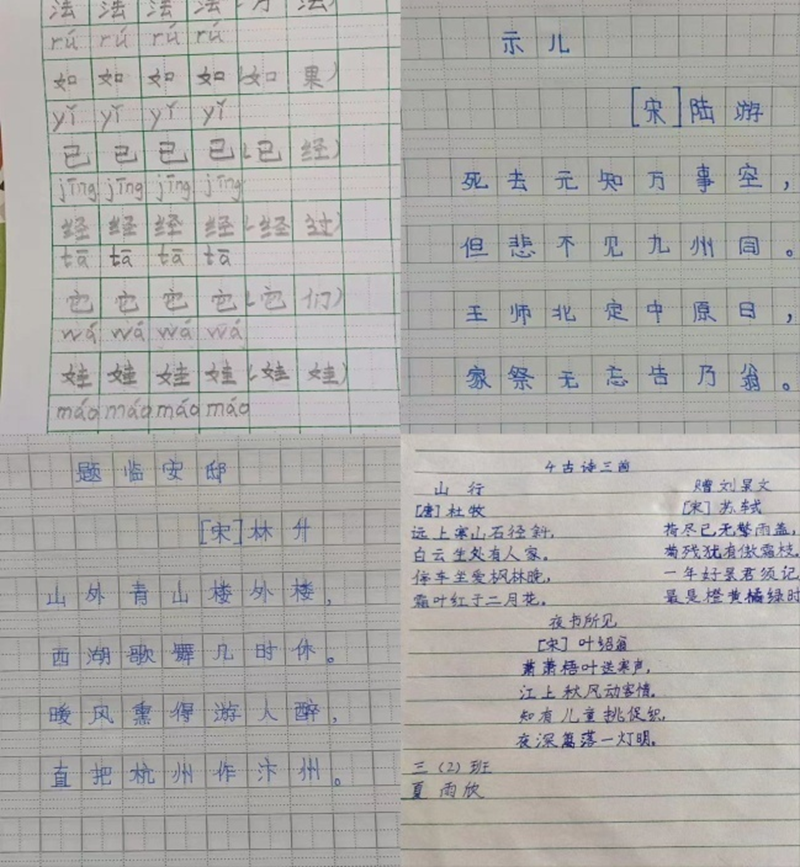 法 法 法 法 (方 法)
rú rú rú rú
如 如 如 如 (如 果)
yǐ yǐ yǐ yǐ
已 已 已 已 (已 经)
jīng jīng jīng jīng
经 经 经 经 (经 过)
tā tā tā tā
它 它 它 它 (它 们)
wá wá wá wá
娃 娃 娃 娃 (娃 娃)
máo máo máo máo
示儿
[宋]陆游
死去元知万事空，
但悲不见九州同。
王师北定中原日，
家祭无忘告乃翁。
题临安邸
[宋]林升
山外青山楼外楼，
西湖歌舞几时休。
暖风熏得游人醉，
直把杭州作汴州。
4古诗三首
山行
[唐]杜牧
远上寒山石径斜，
白云生处有人家。
停车坐爱枫林晚，
霜叶红于二月花。
赠刘景文
[宋]苏轼
荷尽已无擎雨盖，
菊残犹有傲霜枝。
一年好景君须记
最是橙黄橘绿时
夜书所见
[宋]叶绍翁
萧萧梧叶送寒声，
江上秋风动客情。
知有儿童挑促织，
夜深篱落一灯明。
三(2)班
夏雨欣